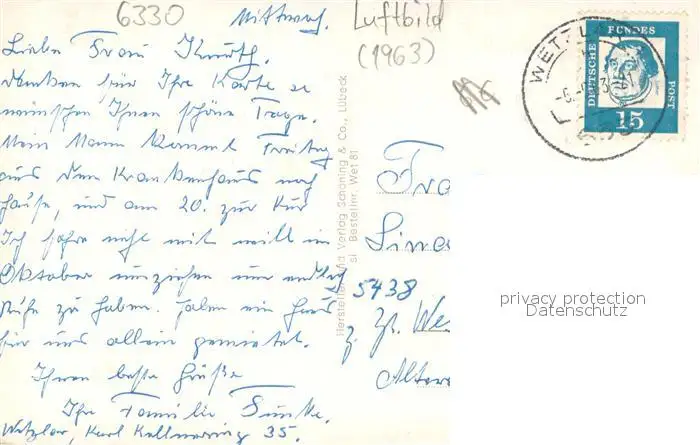 6330
Mittwoch.
Luftbild
(1963)
Liebe Frau Knuth,
danken für Ihre Karte u
wünschen Ihnen schöne Tage.
Mein Mann kommt Freitag
aus dem Krankenhaus nach
Hause, und am 20. zur Kur
Ich fahre nicht mit will im
Oktober umziehen um endlich
Ruhe zu haben. haben ein Haus
für uns allein gemietet.
Ihnen beste Grüße
Ihre Familie Funke.
Wetzlar, Karl Kellnerring 35.
Hersteller und Verlag Schöning & Co., Lübeck
si Bestellnr. Wet 81
WETZLAR
DEUTSCHE BUNDESPOST
15
Fra
5438
z. Zt. We
privacy protection
Datenschutz